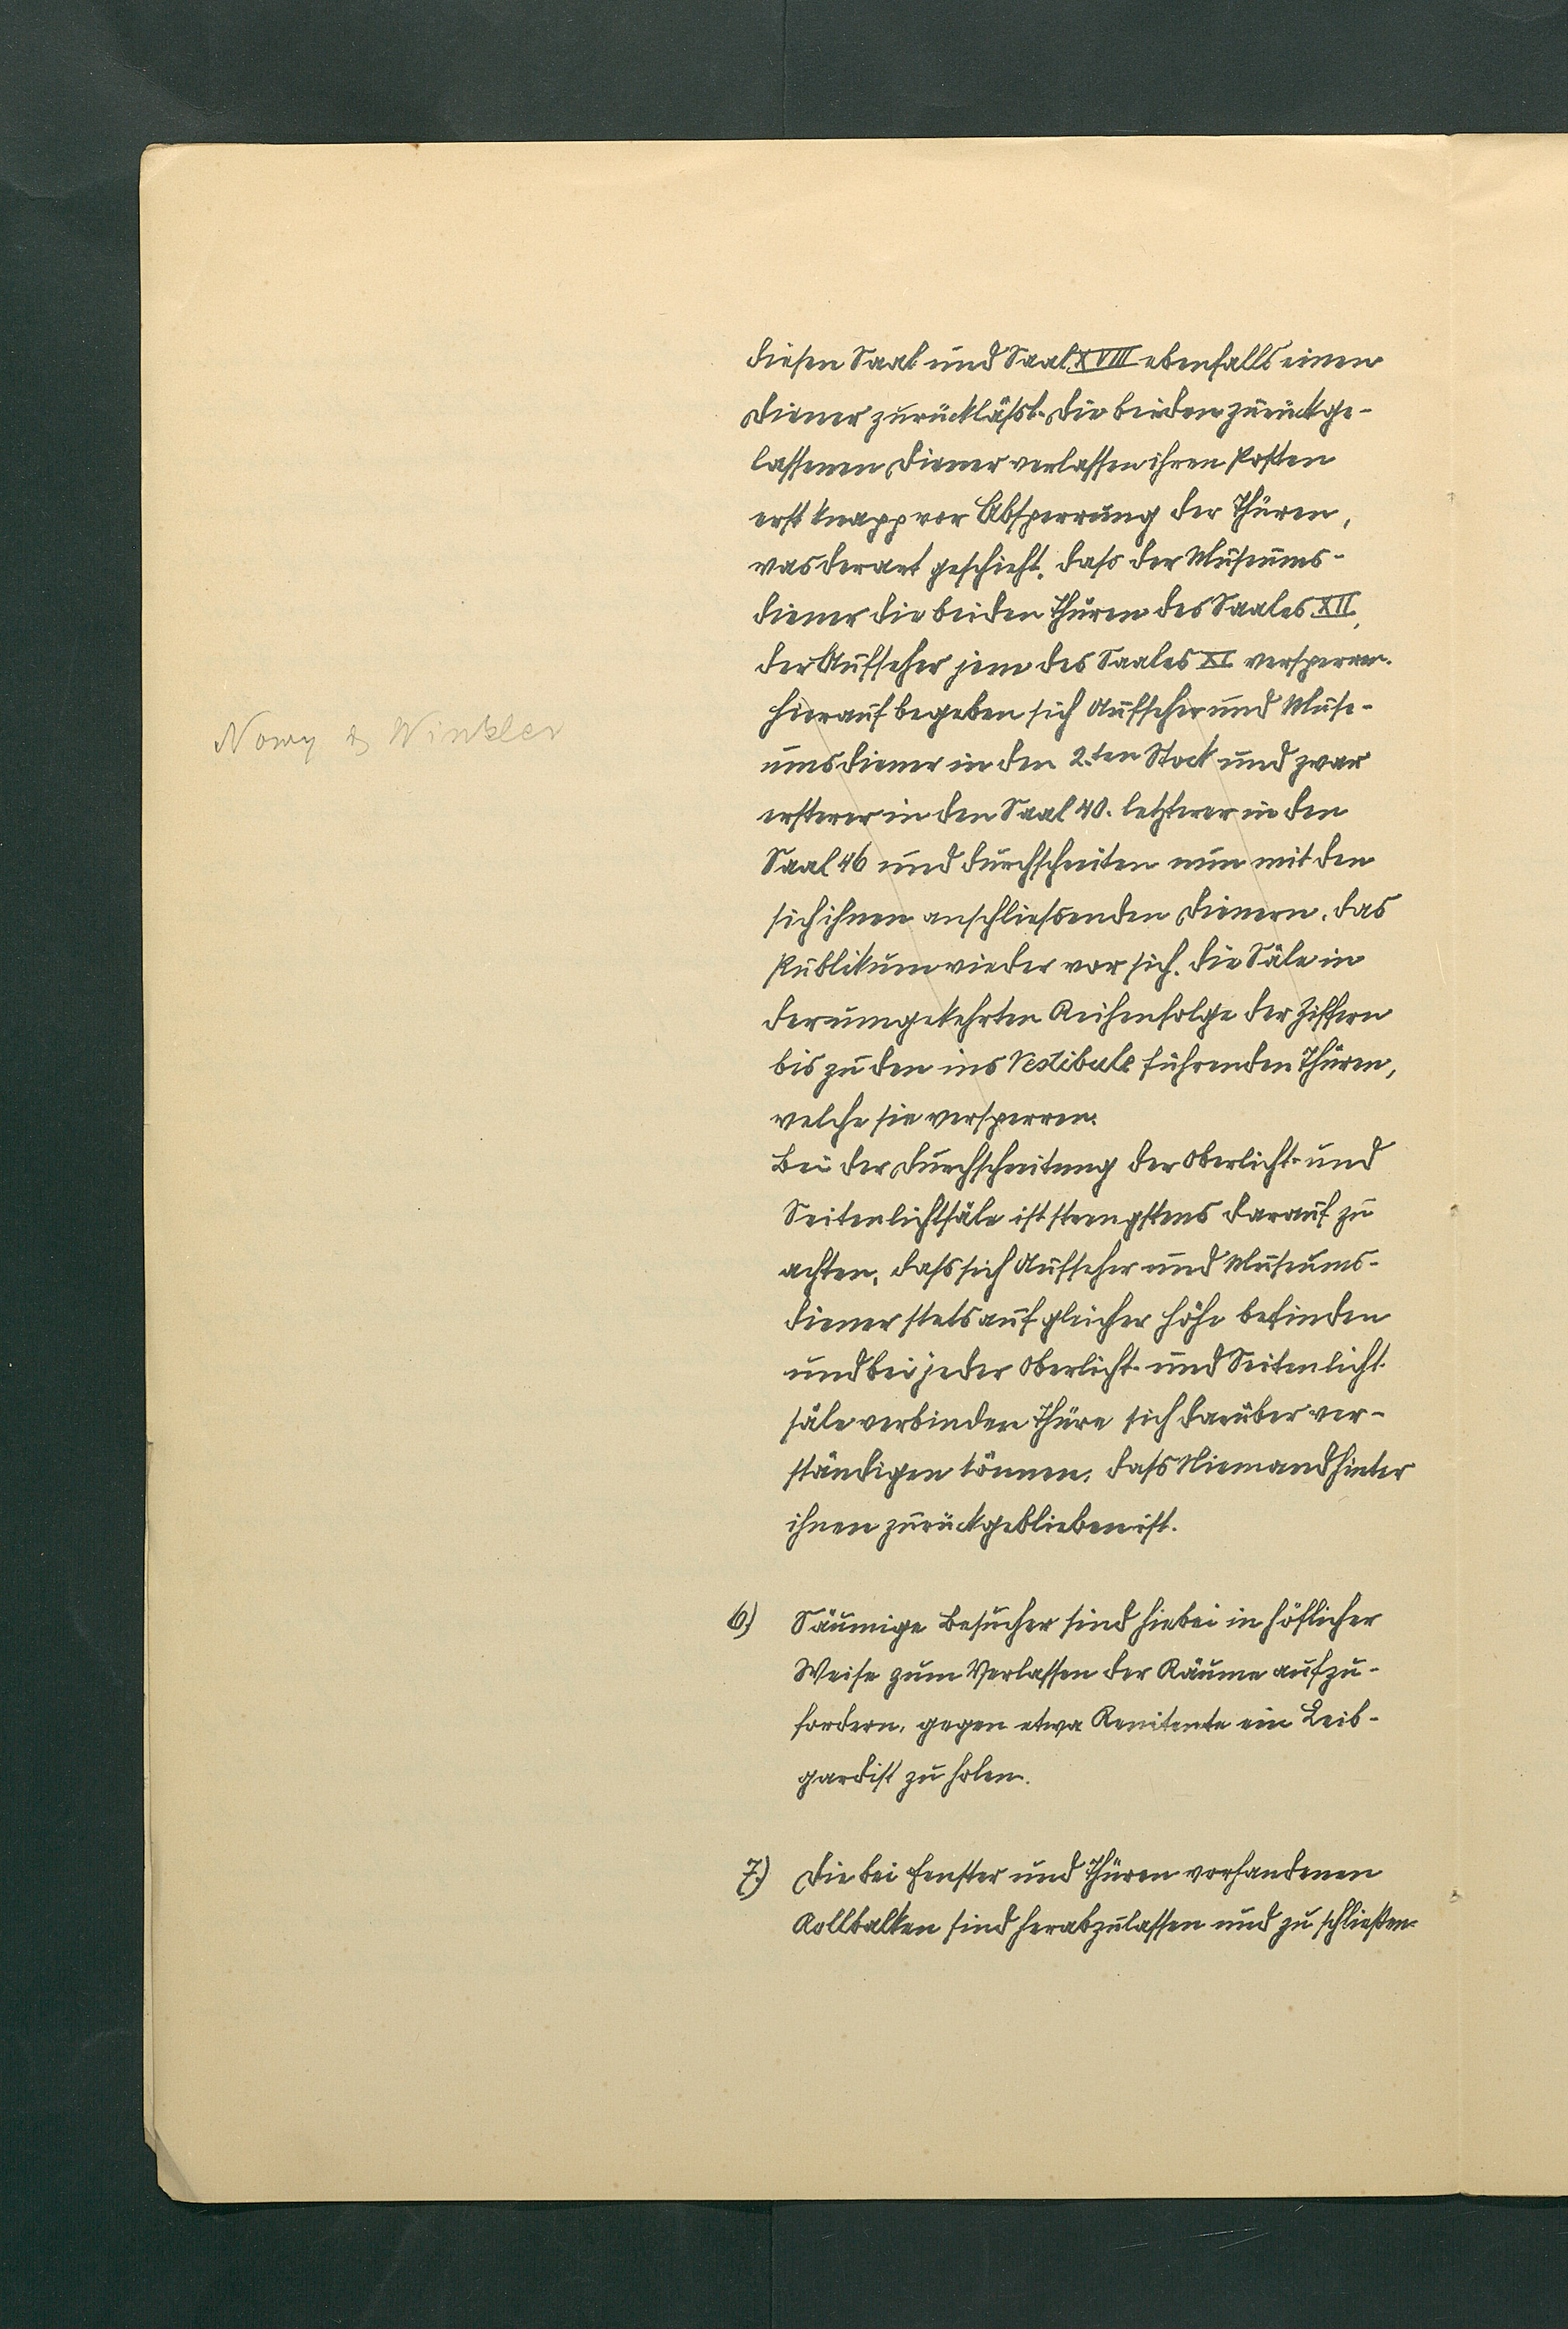 diesen Saal und Saal XVIII ebenfalls einen
Diener zurückläßt. Die beiden zurückge-
lassenen Diener verlassen ihren Posten
erst knapp vor Absperrung der Thüren,
was derart geschieht, daß der Museums-
diener die beiden Thüren des Saales XII,
der Aufseher jene des Saales XI versperren.
Hierauf begeben sich Aufseher und Muse-
Nowy & Winkler
umsdiener in den 2.ten Stock und zwar
ersterer in den Saal 40. letzterer in den
Saal 46 und durchschreiten nun mit den
sich ihnen anschließenden Dienern, das
Publikum wieder vor sich, die Säle in
der umgekehrten Reihenfolge der Ziffern
bis zu den ins Vestibule führenden Thüren,
welche sie versperren.
Bei der Durchschreitung der Oberlicht- und
Seitenlichtsäle ist strengstens darauf zu
achten, daß sich Aufseher und Museums-
diener stets auf gleicher Höhe befinden
und bei jeder Oberlicht- und Seitenlicht-
säle verbinden Thüre sich darüber ver-
ständigen können, daß Niemand hinter
ihnen zurückgeblieben ist.
6.) Säumige Besucher sind hiebei in höflicher
Weise zum Verlassen der Räume aufzu-
fordern, gegen etwa Renitente ein Leib-
gardist zu holen.
7.) Die bei Fenster und Thüren vorhandenen
Rollbalken sind herabzulassen und zu schließen.